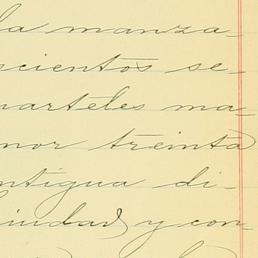 la manza-
scientos se-
uarteles ma-
nor treinta
ntigua di-
iudad y con-